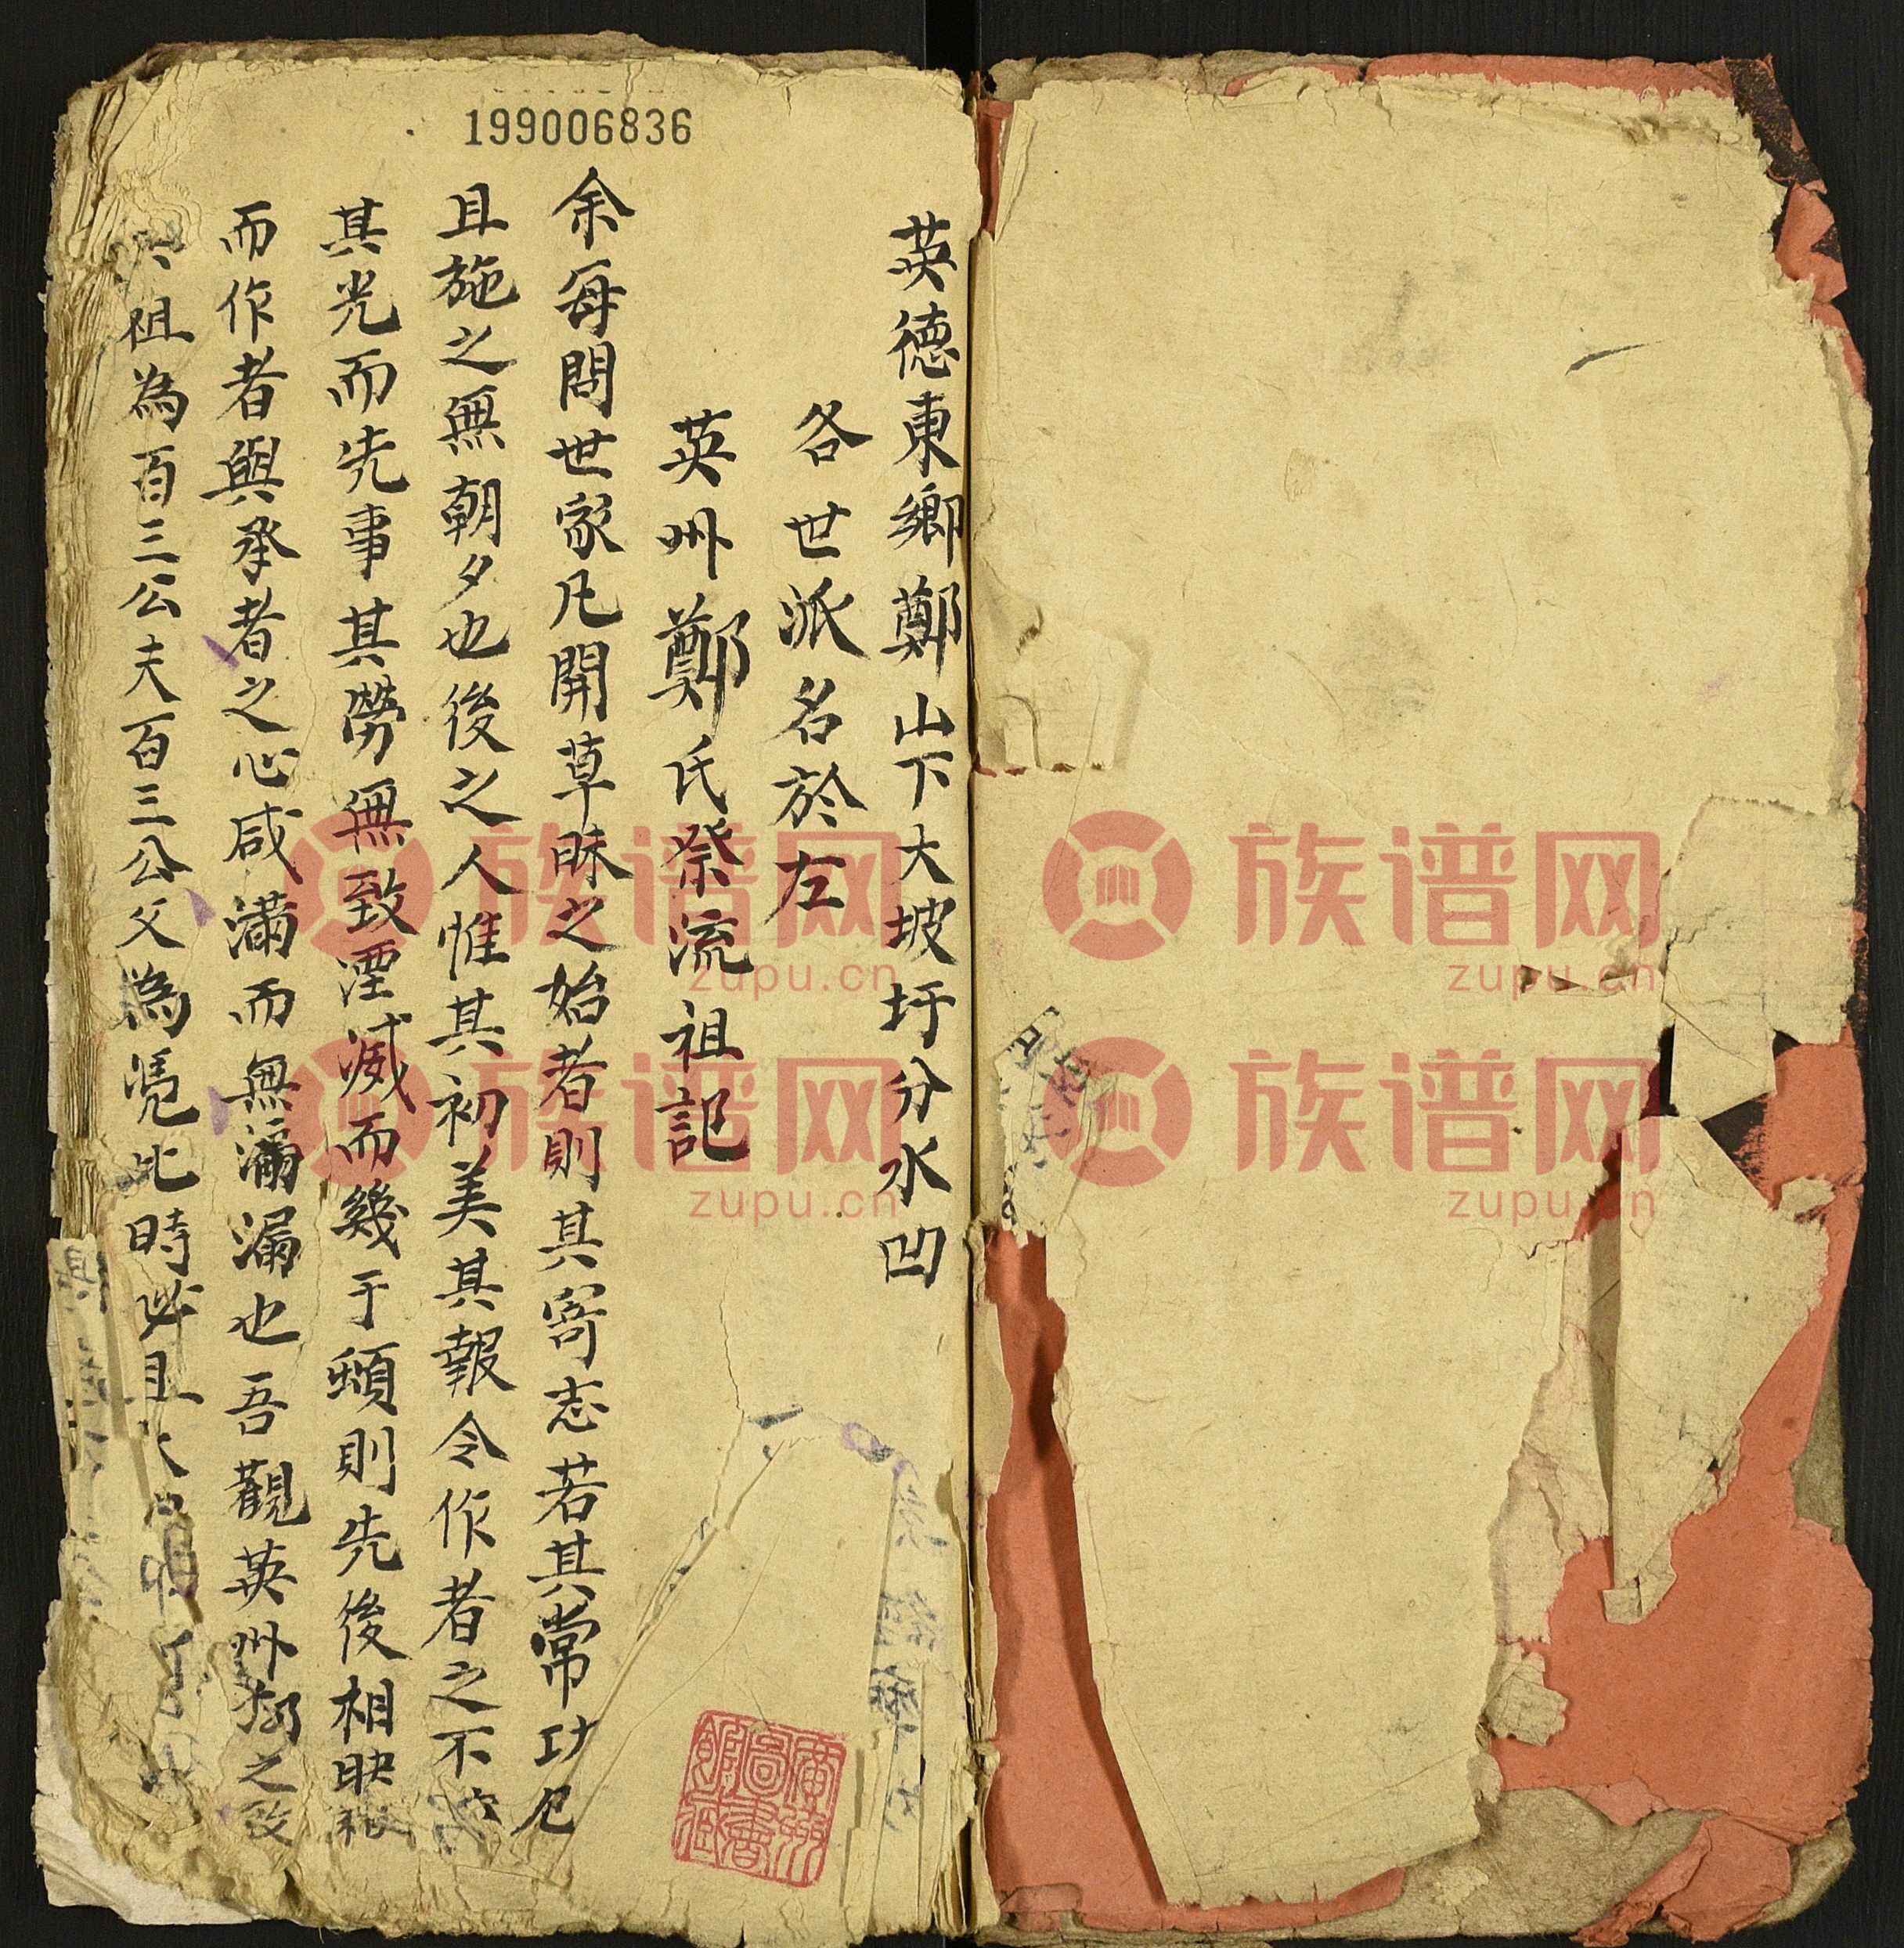 199006836
英德東鄉鄭山下大坡圩分水凹
各世派名於左
英州鄭氏祭流祖記
余每閱世家凡開草昧之始者則其寄志若其常功
且施之無朝夕也後之人惟其初美其報令作者之不
其光而先事其勞無致湮滅而幾于頹則先後相映
而作者與承者之心咸滿而無滲漏也吾觀英州 之
祖為百三公夫百三公父為 比時必且
廣州圖書館藏
族谱网
zupu.cn
族谱网
zupu.cn
族谱网
zupu.cn
族谱网
zupu.cn